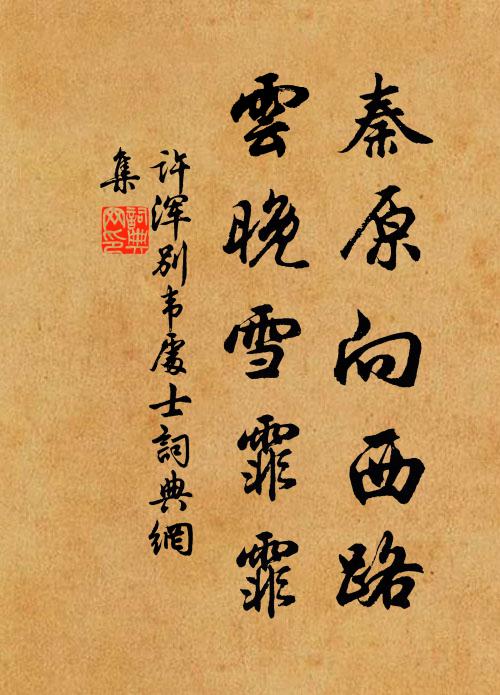 秦原向西路
雲晚雪霏霏
许浑别韦處士詞典網
集
詞典網印